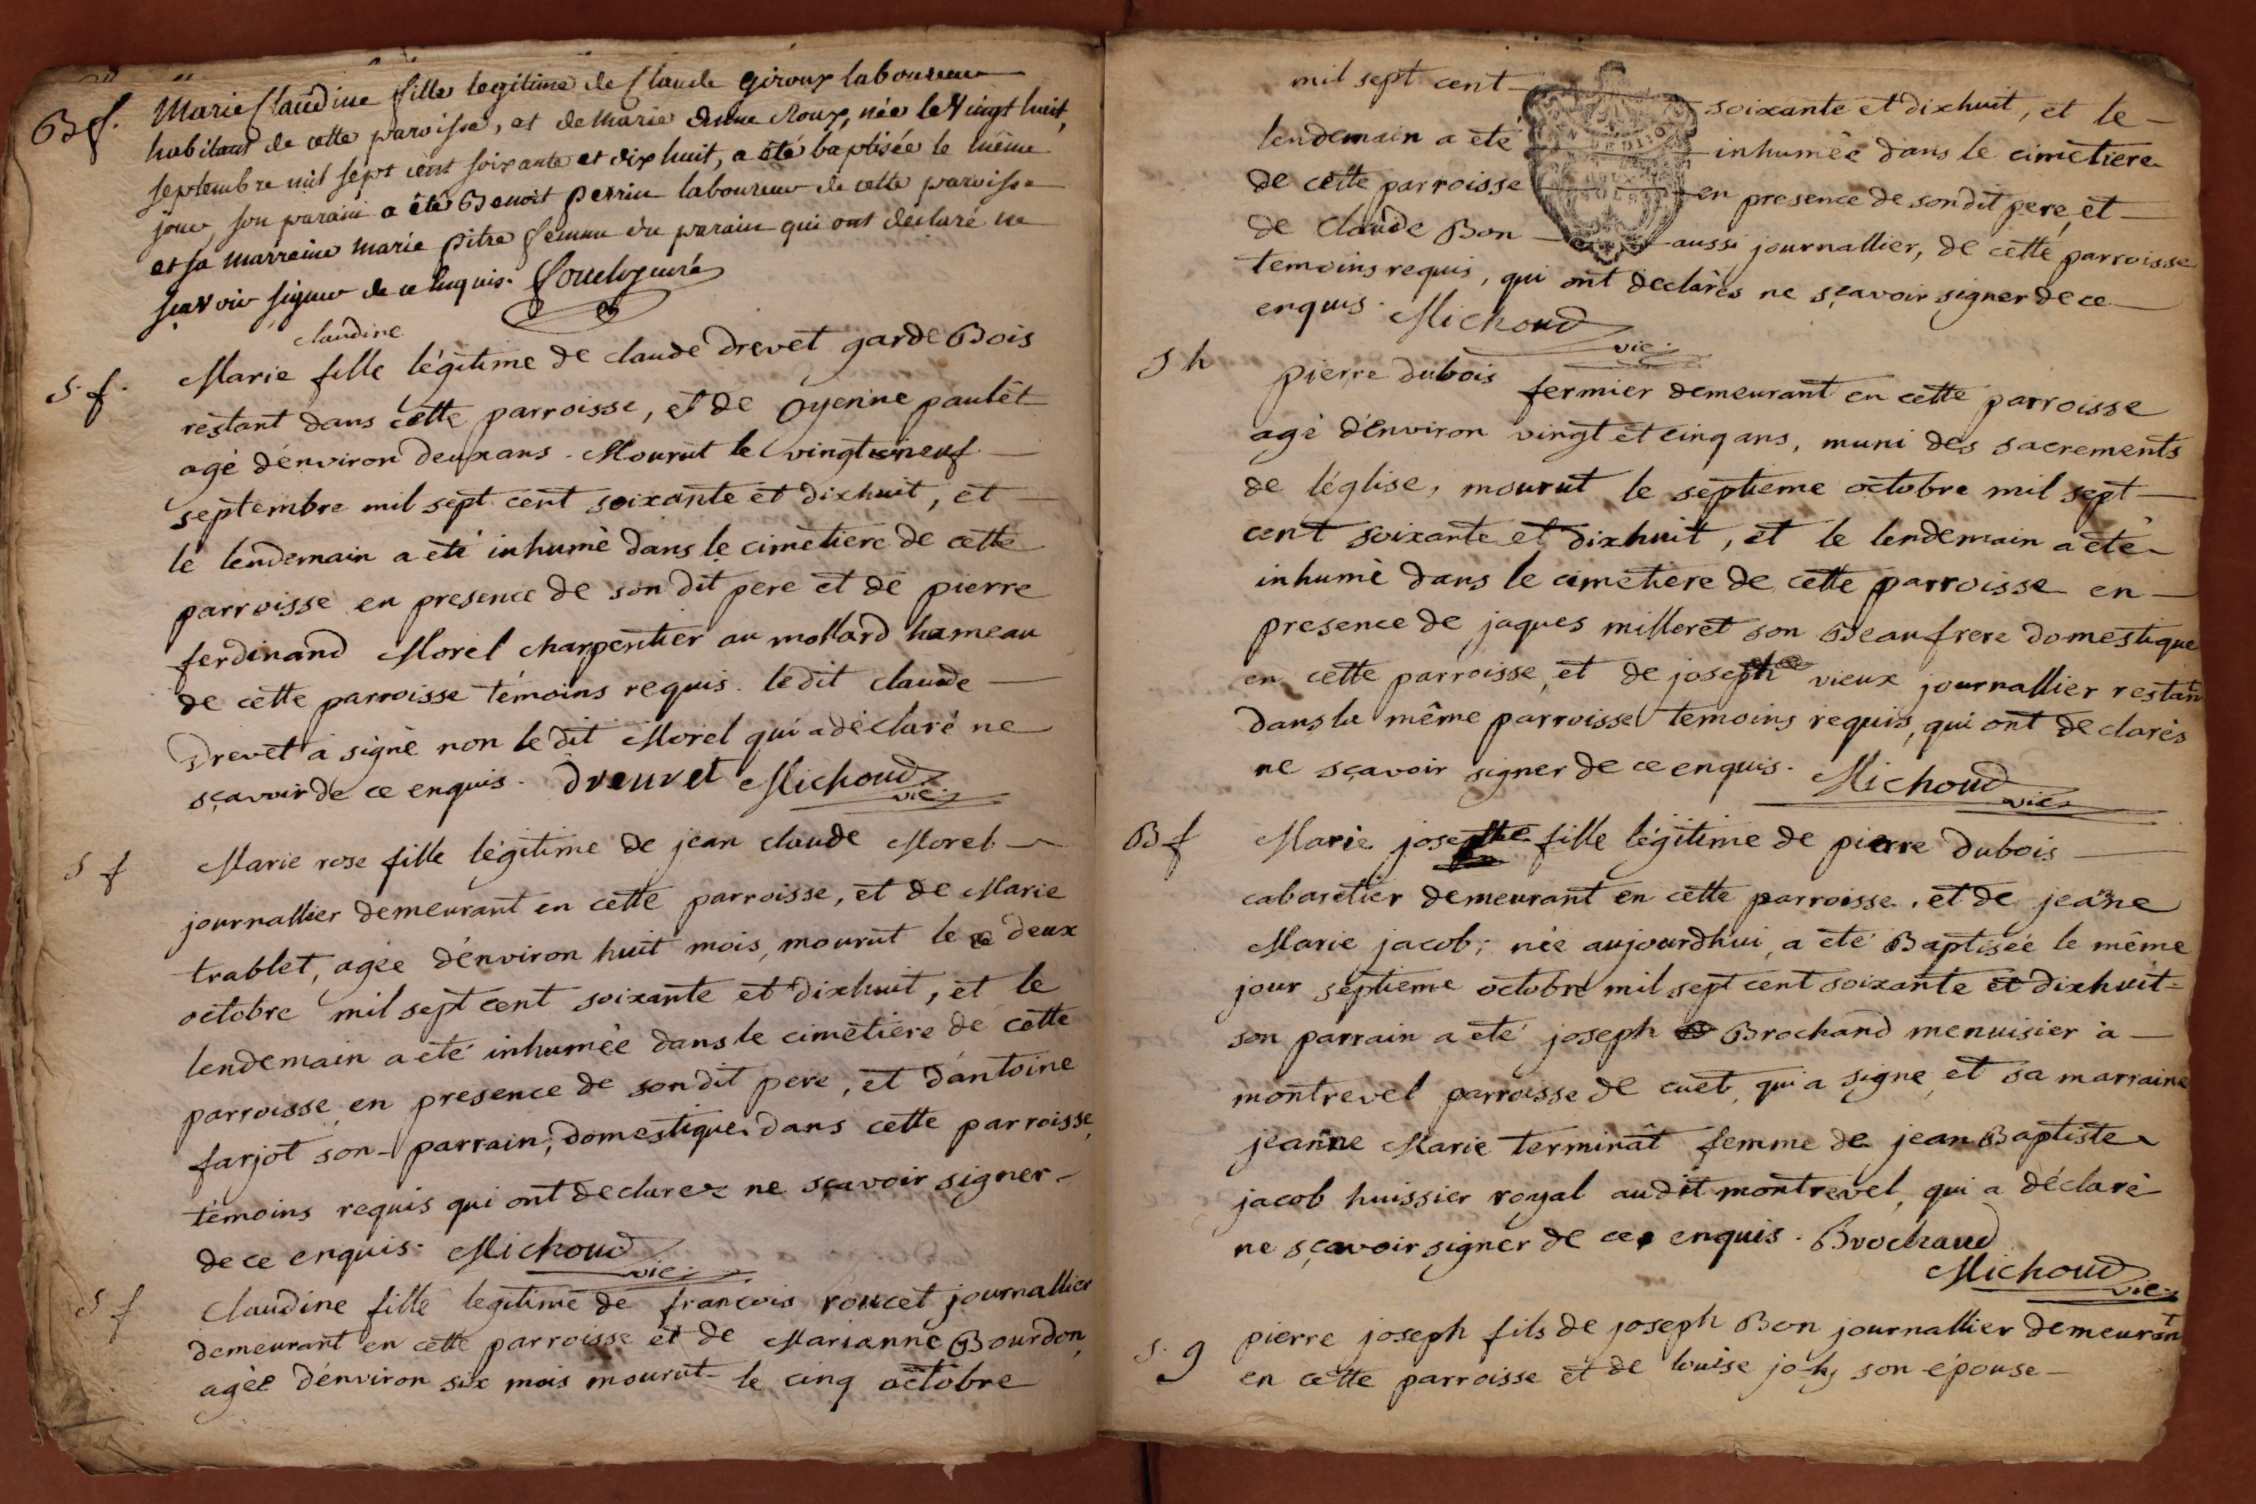 B f.
Marie Claudine fille legitime de Claude Giroux laboureur
habitant de cette paroisse, et de Marie Anne Roux, née le vingt huit,
septembre mil sept cent soixante et dix huit, a été baptisée le même
jour, son parain a été Benoit Perrin laboureur de cette paroisse
et sa marraine Marie pitre femme du parain qui ont declaré ne
sçavoir signer de ce enquis.
S. f.
claudine
Marie fille légitime de claude Drevet garde Bois
restant dans cette parroisse, et de Oyenne paulet
agé d'environ deux ans. Mourut le vingt neuf
septembre mil sept cent soixante et dixhuit, et
le lendemain a eté inhumé dans le cimetiere de cette
parroisse en presence de son dit pere et de pierre
ferdinand Morel charpentier au mollard hameau
de cette parroisse témoins requis. ledit claude
Drevet a signé non le dit Morel qui a déclaré ne
sçavoir de ce enquis. Drevvet Michoud
vic.
S f
Marie rose fille légitime de jean claude Morel
journallier demeurant en cette parroisse, et de Marie
trablet, agée d'environ huit mois, mourut le deux
octobre mil sept cent soixante et dixhuit, et le
lendemain a eté inhumée dans le cimetiere de cette
parroisse en presence de son dit pere, et d'antoine
farjot son parrain, domestique dans cette parroisse,
témoins requis qui ont declarez ne sçavoir signer
de ce enquis. Michoud
vic.
S f
Claudine fille legitime de francois roucet journallier
demeurant en cette parroisse et de Marianne Bourdon,
agée d'environ six mois mourut le cinq octobre
mil sept cent soixante et dixhuit, et le
lendemain a eté inhumée dans le cimetiere
de cette parroisse en presence de son dit pere, et
de Claude Bon aussi journallier, de cette parroisse
temoins requis, qui ont declarés ne sçavoir signer de ce
enquis. Michoud
vic.
S h
pierre dubois fermier demeurant en cette parroisse
agé d'environ vingt et cinq ans, muni des sacrements
de l'église, mourut le septieme octobre mil sept
cent soixante et dixhuit, et le lendemain a eté
inhumé dans le cimetiere de cette parroisse en
presence de jaques milleret son Beaufrere domestique
en cette parroisse, et de joseph vieux journallier restant
dans la même parroisse temoins requis, qui ont declarés
ne sçavoir signer de ce enquis. Michoud
vic.
B f
Marie josephte fille légitime de pierre dubois
cabaretier demeurant en cette parroisse, et de jeanne
Marie jacob; née aujourdhui, a eté Baptisée le même
jour septieme octobre mil sept cent soixante et dixhuit
son parrain a eté joseph Brochand menuisier à
montrevel parroisse de cuet, qui a signe, et sa marraine
jeanne Marie terminat femme de jean Baptiste
jacob huissier royal audit montrevel, qui a déclaré
ne sçavoir signer de ce enquis. Brochand
Michoud
vic.
S. g
pierre joseph fils de joseph Bon journallier demeurant
en cette parroisse et de louise joly son épouse